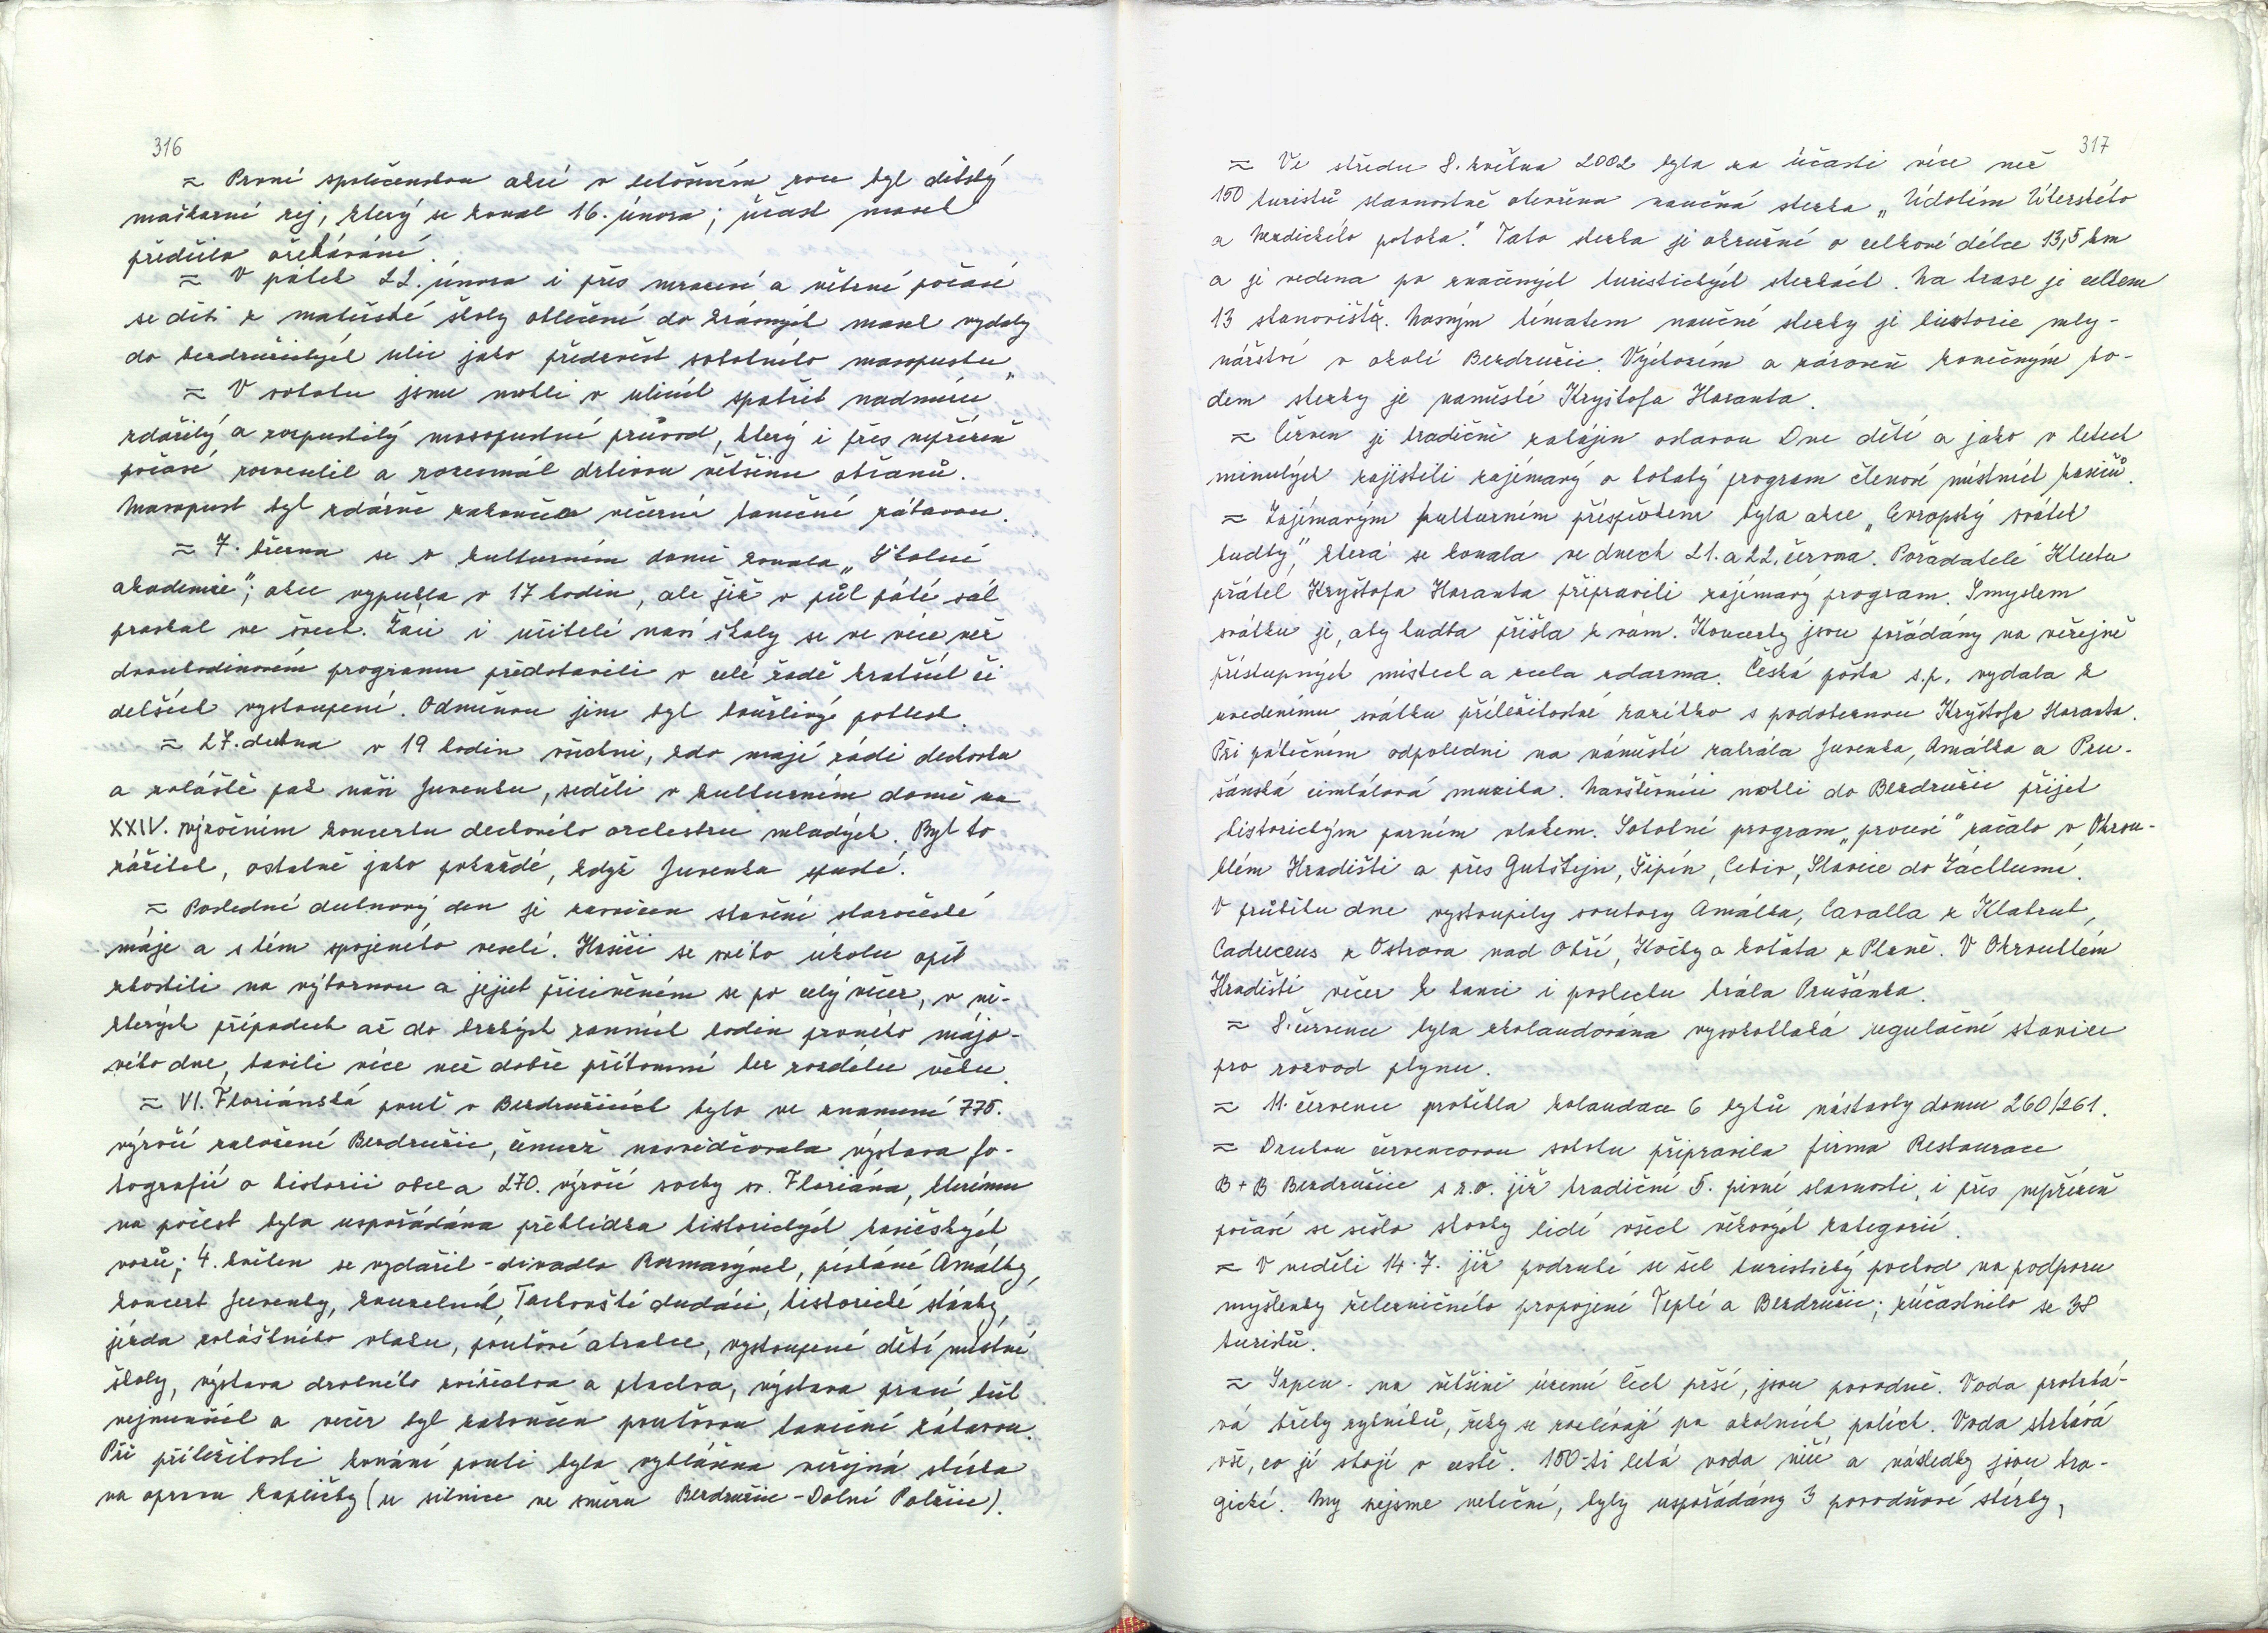 316
≈ První společenskou akcí v letošním roce byl dětský
maškarní rej, který se konal 16. února; účast masek
předčila očekávání.
≈ V pátek 22. února i přes mrazení a větrné počasí
se děti z mateřské školy oblečené do krásných masek vydaly
do bezdružických ulic jako předzvěst sobotního masopustu.
≈ V sobotu jsme mohli v ulicích spatřit nadmíru
zdařilý a rozpustilý masopustní průvod, který i přes nepřízeň
počasí rozveselil a rozesmál drtivou většinu občanů.
Masopust byl zdárně zakončen večerní taneční zábavou.
≈ 7. března se v kulturním domě konala „Školní
akademie"; akce vypukla v 17 hodin, ale již v půl páté sál
praskal ve švech. Žáci i učitelé naší školy se ve více než
dvouhodinovém programu představili v celé řadě kratších či
delších vystoupení. Odměnou jim byl bouřlivý potlesk.
≈ 27. dubna v 19 hodin všichni, kdo mají rádi dechovku
a zvláště pak naši Juvenku, seděli v kulturním domě na
XXIV. výročním koncertu dechového orchestru mladých. Byl to
zážitek, ostatně jako pokaždé, když Juvenka spustí.
≈ Poslední dubnový den je zasvěcen stavění staročeské
máje a s tím spojeného veselí. Hasiči se svého úkolu opět
zhostili na výbornou a jejich přičiněním se po celý večer, v ně-
kterých případech až do brzkých ranních hodin prvního májo-
vého dne, bavili více než dobře přítomní bez rozdílu věku.
≈ VI. Floriánská pouť v Bezdružicích byla ve znamení 775.
výročí založení Bezdružic, čemuž nasvědčovala výstava fo-
tografií o historii obce a 270. výročí sochy sv. Floriána, kterému
na počest byla uspořádána přehlídka historických hasičských
vozů; 4. květen se vydařil - divadlo Rozmarýnek, písláné Amálky,
koncert Juvenky, kouzelník, Tachovští dudáci, historické stánky,
jízda zvláštního vlaku, pouťové atrakce, vystoupení dětí místní
školy, výstava drobného zvířectva a ptactva, výstava prací těch
nejmenších a večer byl zakončen pouťovou taneční zábavou.
Při příležitosti konání pouti byla vyhlášena veřejná sbírka
na opravu kapličky (u silnice ve směru Bezdružice - Dolní Polžice).
317
≈ Ve středu 8. května 2002 byla za účasti více než
150 turistů slavnostně otevřena naučná stezka „Údolím Úterského
a Hadovského potoka." Tato stezka je okružní o celkové délce 13,5 km
a je vedena po značených turistických stezkách. Na trase je celkem
13 stanovišť. Nosným tématem naučné stezky je historie mly-
nářství v okolí Bezdružic. Výchozím a zároveň konečným bo-
dem stezky je náměstí Kryštofa Haranta.
≈ Červen je tradičně zahájen oslavou Dne dětí a jako v letech
minulých zajistili zajímavý a bohatý program členové místních hasičů.
≈ Zajímavým kulturním příspěvkem byla akce „Evropský svátek
hudby," která se konala ve dnech 21. a 22. června. Pořadatelé Klubu
přátel Kryštofa Haranta připravili zajímavý program. Smyslem
svátku je, aby hudba přišla k vám. Koncerty jsou pořádány na veřejně
přístupných místech a zcela zdarma. Česká pošta s.p. vydala k
uvedenému svátku příležitostné razítko s podobiznou Kryštofa Haranta.
Při pátečním odpoledni na náměstí zahrála Juvenka, Amálka a Pru-
šánská cimbálová muzika. Návštěvníci mohli do Bezdružic přijet
historickým parním vlakem. Sobotní program „procesí" začalo v Okrou-
hlém Hradišti a přes Gutštejn, Šipín, Cebiv, Slavice do Záchlumí.
V průběhu dne vystoupily soubory Amálka, Cavalla z Kladrub,
Caduceus z Ostrova nad Ohří, Kočky a koťata z Plané. V Okrouhlém
Hradišti večer k tanci i poslechu hrála Prušánka.
≈ 8. července byla zkolaudována vysokotlaká regulační stanice
pro rozvod plynu.
≈ 11. července proběhla kolaudace 6 bytů nástavby domu 260/261.
≈ Druhou červencovou sobotu připravila firma Restaurace
B+B Bezdružice s r.o. již tradiční 5. pivní slavnosti, i přes nepřízeň
počasí se sešlo stovky lidí všech věkových kategorií.
≈ V neděli 14.7. již podruhé se šel turistický pochod na podporu
myšlenky železničního propojení Teplé a Bezdružic; zúčastnilo se 38
turistů.
≈ Srpen - na většině území Čech prší, jsou povodně. Voda protrhá-
vá břehy rybníků, řeky se rozlévají po okolních polích. Voda strhává
vše, co jí stojí v cestě. 100-ti letá voda ničí a následky jsou tra-
gické. My nejsme neteční, byly uspořádány 3 povodňové sbírky,